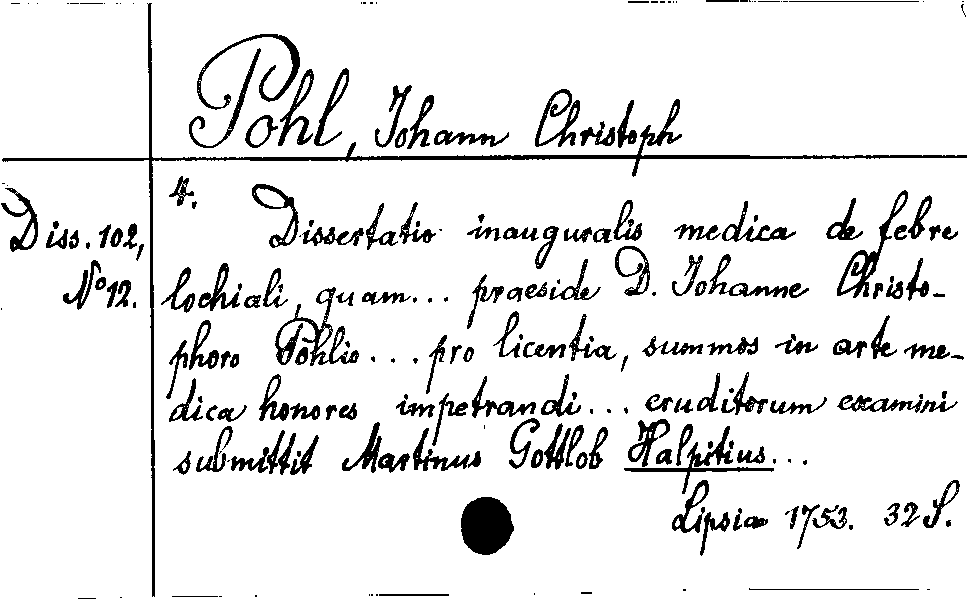 Pohl, Johann Christoph
4.
Diss. 102,
No 12.
Dissertatio inauguralis medica de febre
lochiali, quam... praeside D. Johanne Christo-
phoro Pohlio... pro licentia, summos in arte me-
dica honores impetrandi... eruditorum examini
submittit Martinus Gottlob Halpitius...
Lipsiae 1753. 32 S.